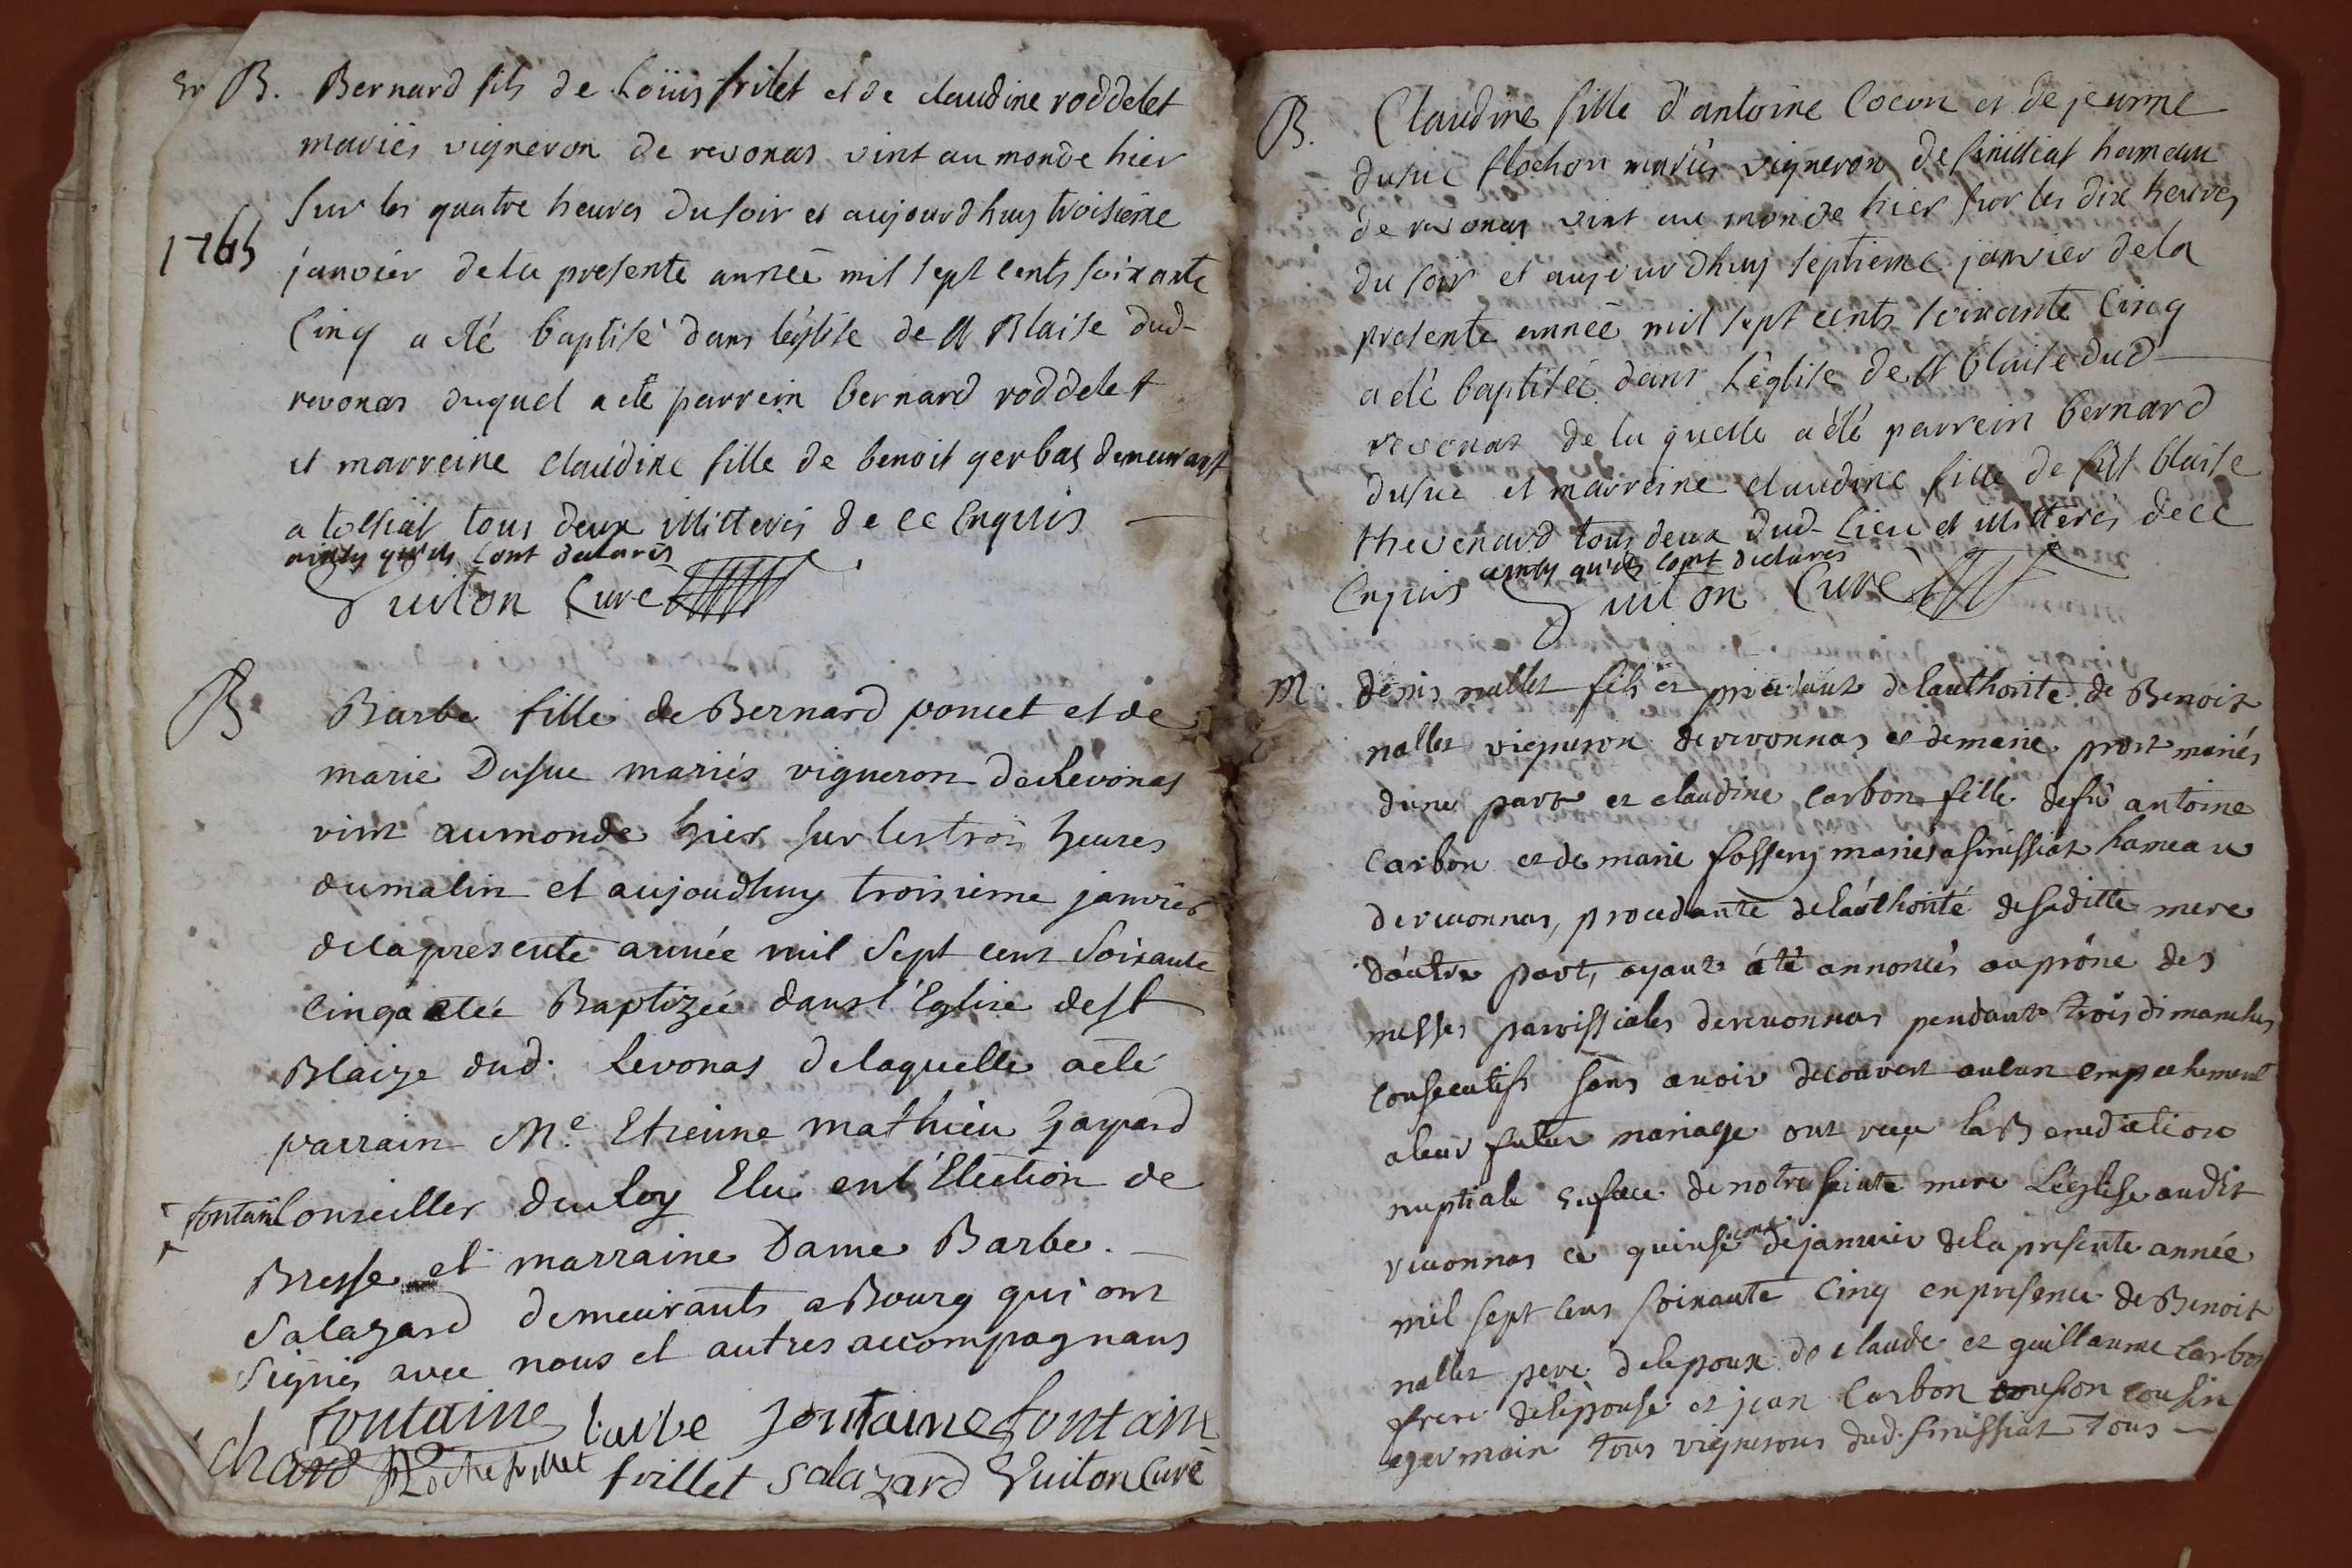 B. Bernard fils de Loüis frilet et de claudine roddelet
mariés vigneron de revonas vint au monde hier
sur les quatre heures du soir et aujourdhuy troisieme
1765
janvier de la presente année mil sept cents soixante
Cinq a eté baptisé dans léglise de st Blaise dud-
revonas duquel a eté parrein bernard roddelet
et marreine claudine fille de benoit gerbas demeurant
a tossiat tous deux illitterés de ce Enquis
ainsy qu'ils l'ont declarés
Guiton Curé
B Barbe fille de Bernard poncet et de
marie Dusuc mariés vigneron de Revonas
vint au monde hier sur les trois heures
du matin et aujoudhuy troisieme janvier
de la presente année mil Sept cent Soixante
Cinq a etée Baptizée dans l'Eglise de st
Blaize dud. Revonas de laquelle a eté
parrain Me Etienne mathieu
fontain Conseiller du Roy Elu en l'Election de
Bresse et marraine Dame Barbe
Salazard demeurants a Bourg qui ont
Signés avec nous et autres accompagnans
fontaine barbe fontaine fontaine
chard frillet Salazard Guiton Curé
B. Claudine fille d'antoine Cocon et de jeanne
dusuc flochon mariés vigneron de sinissiat hameau
de revonas vint au monde hier sur les dix heures
du soir et aujourdhuy septieme janvier de la
presente année mil sept cents soixante Cinq
a eté baptisée dans L'église de st blaise dud
revonas de la quelle a été parrein bernard
dusuc et marreine claudine fille de blaise
thevenard tous deux dud- Lieu et illitterés de ce
Enquis ainsy qu'ils l'ont declarés
Guiton Curé
M. denis nallet fils et procedant de lauthorité de Benoit
nallet vigneron de revonnas et de marie prost mariés
dune part et claudine carbon fille de fû antoine
carbon et de marie fossery mariés a sinissiat hameau
de reuonnas, procedante de láuthorité de saditte mere
d'autre part, ayant été annoncés au prône des
messes paroissiales de reuonnas pendant trois dimanches
consecutifs sans avoir découvert aucun empechement
a leur futur mariage ont reçu la Benediction
nuptiale en face de notre sainte mere L'église audit
reuonnas ce quinsieme de januier de la presente année
mil sept cens soixante Cinq en presence de Benoit
nallet pere de lepoux de claude et guillaume Carbon
frere de lépouse et jean Carbon son cousin
germain tous vignerons dud. sinissiat tous